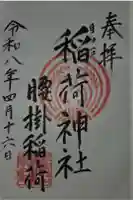 奉拝
稲荷神社
腰掛稲荷
令和八年四月十六日